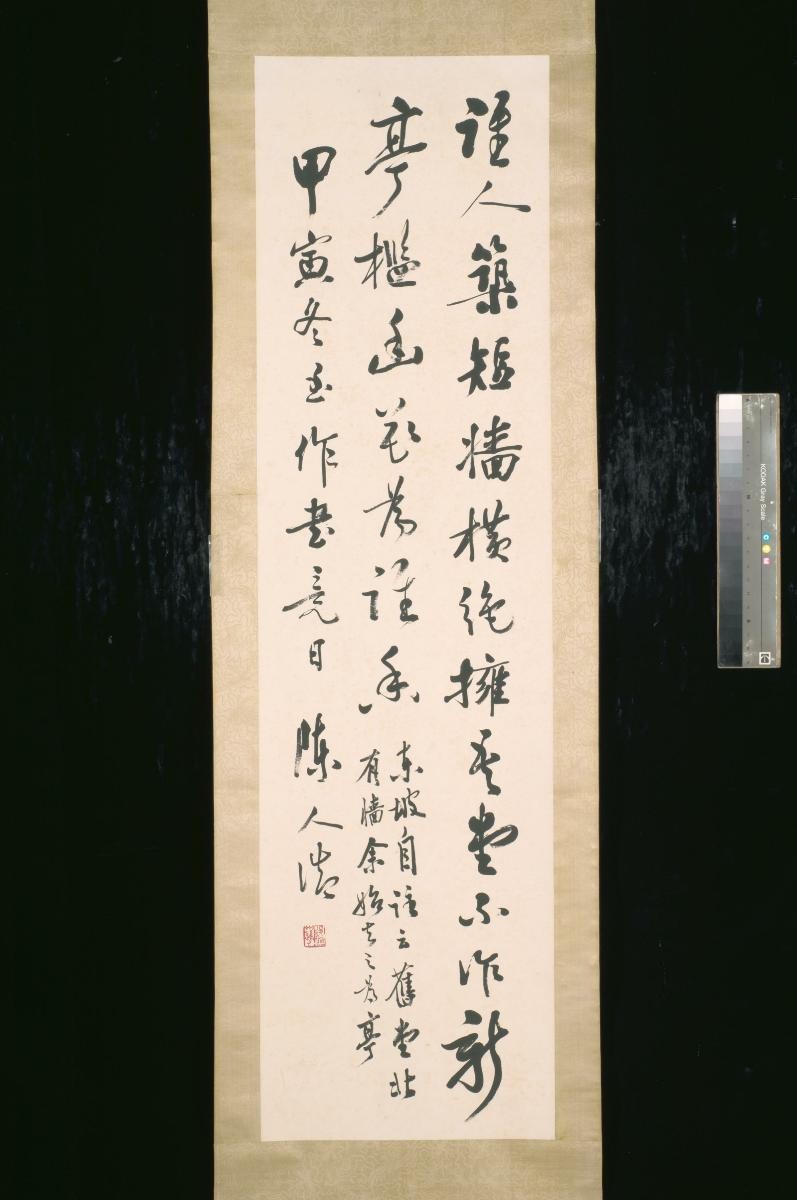 誰人築短牆橫絕擁吾堂不作新
亭檻幽花為誰香
東坡自註云舊堂北
有牆余始去之為亭
甲寅冬至作書竟日 陳人浩
KODAK Gray Scale
C
Y
M